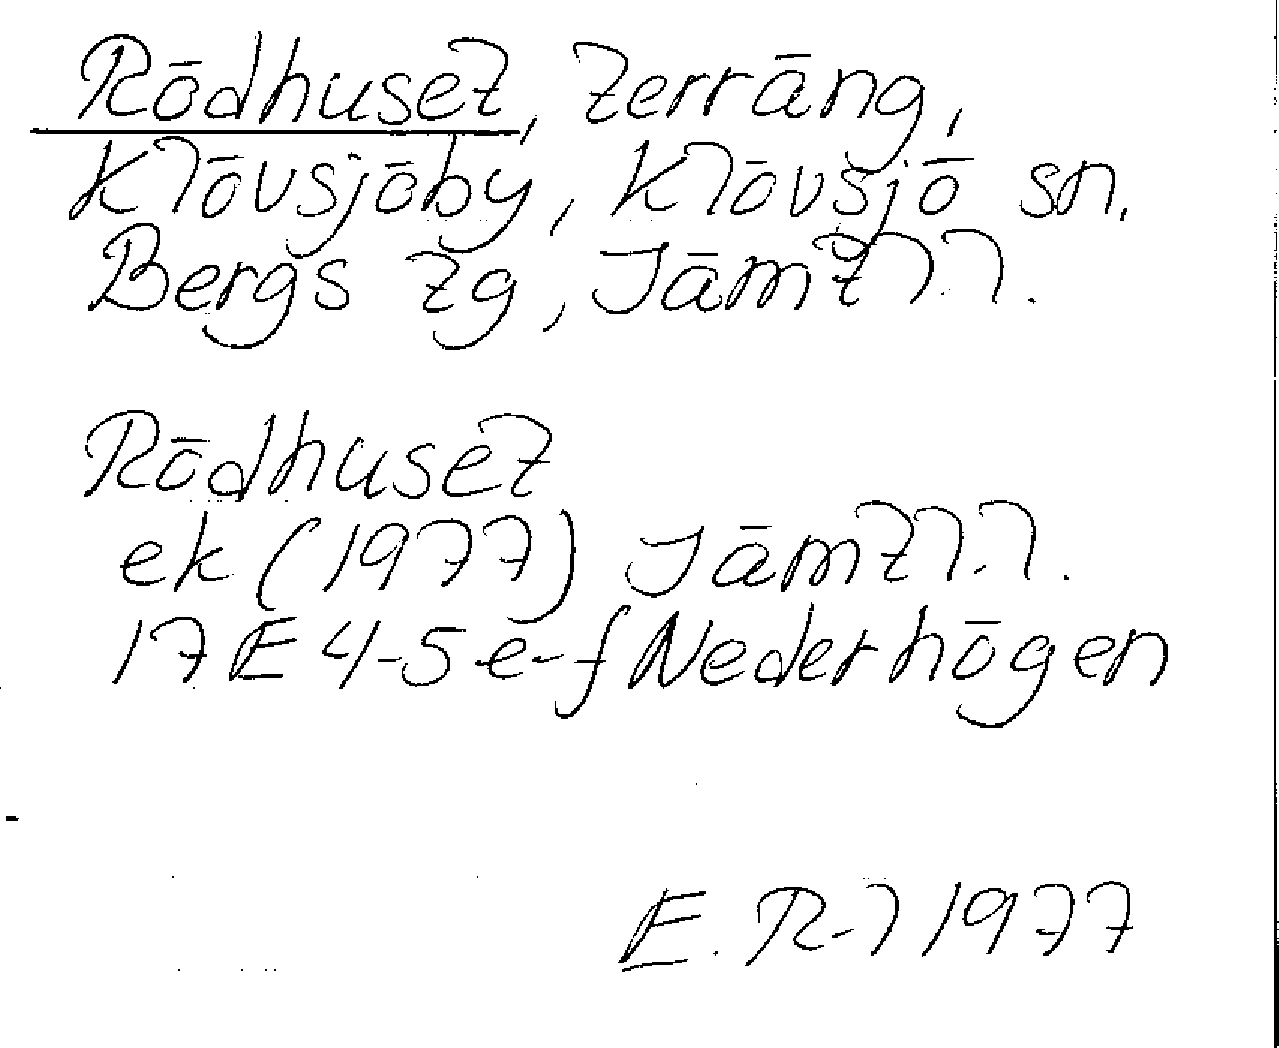 Rödhuset, terräng,
Klövsjöby, Klövsjö sn.
Bergs tg, Jämtl.l.
Rödhuset
ek (1977) Jämtl.l.
17E 4-5 e-f Nederhögen
E. R-l 1977